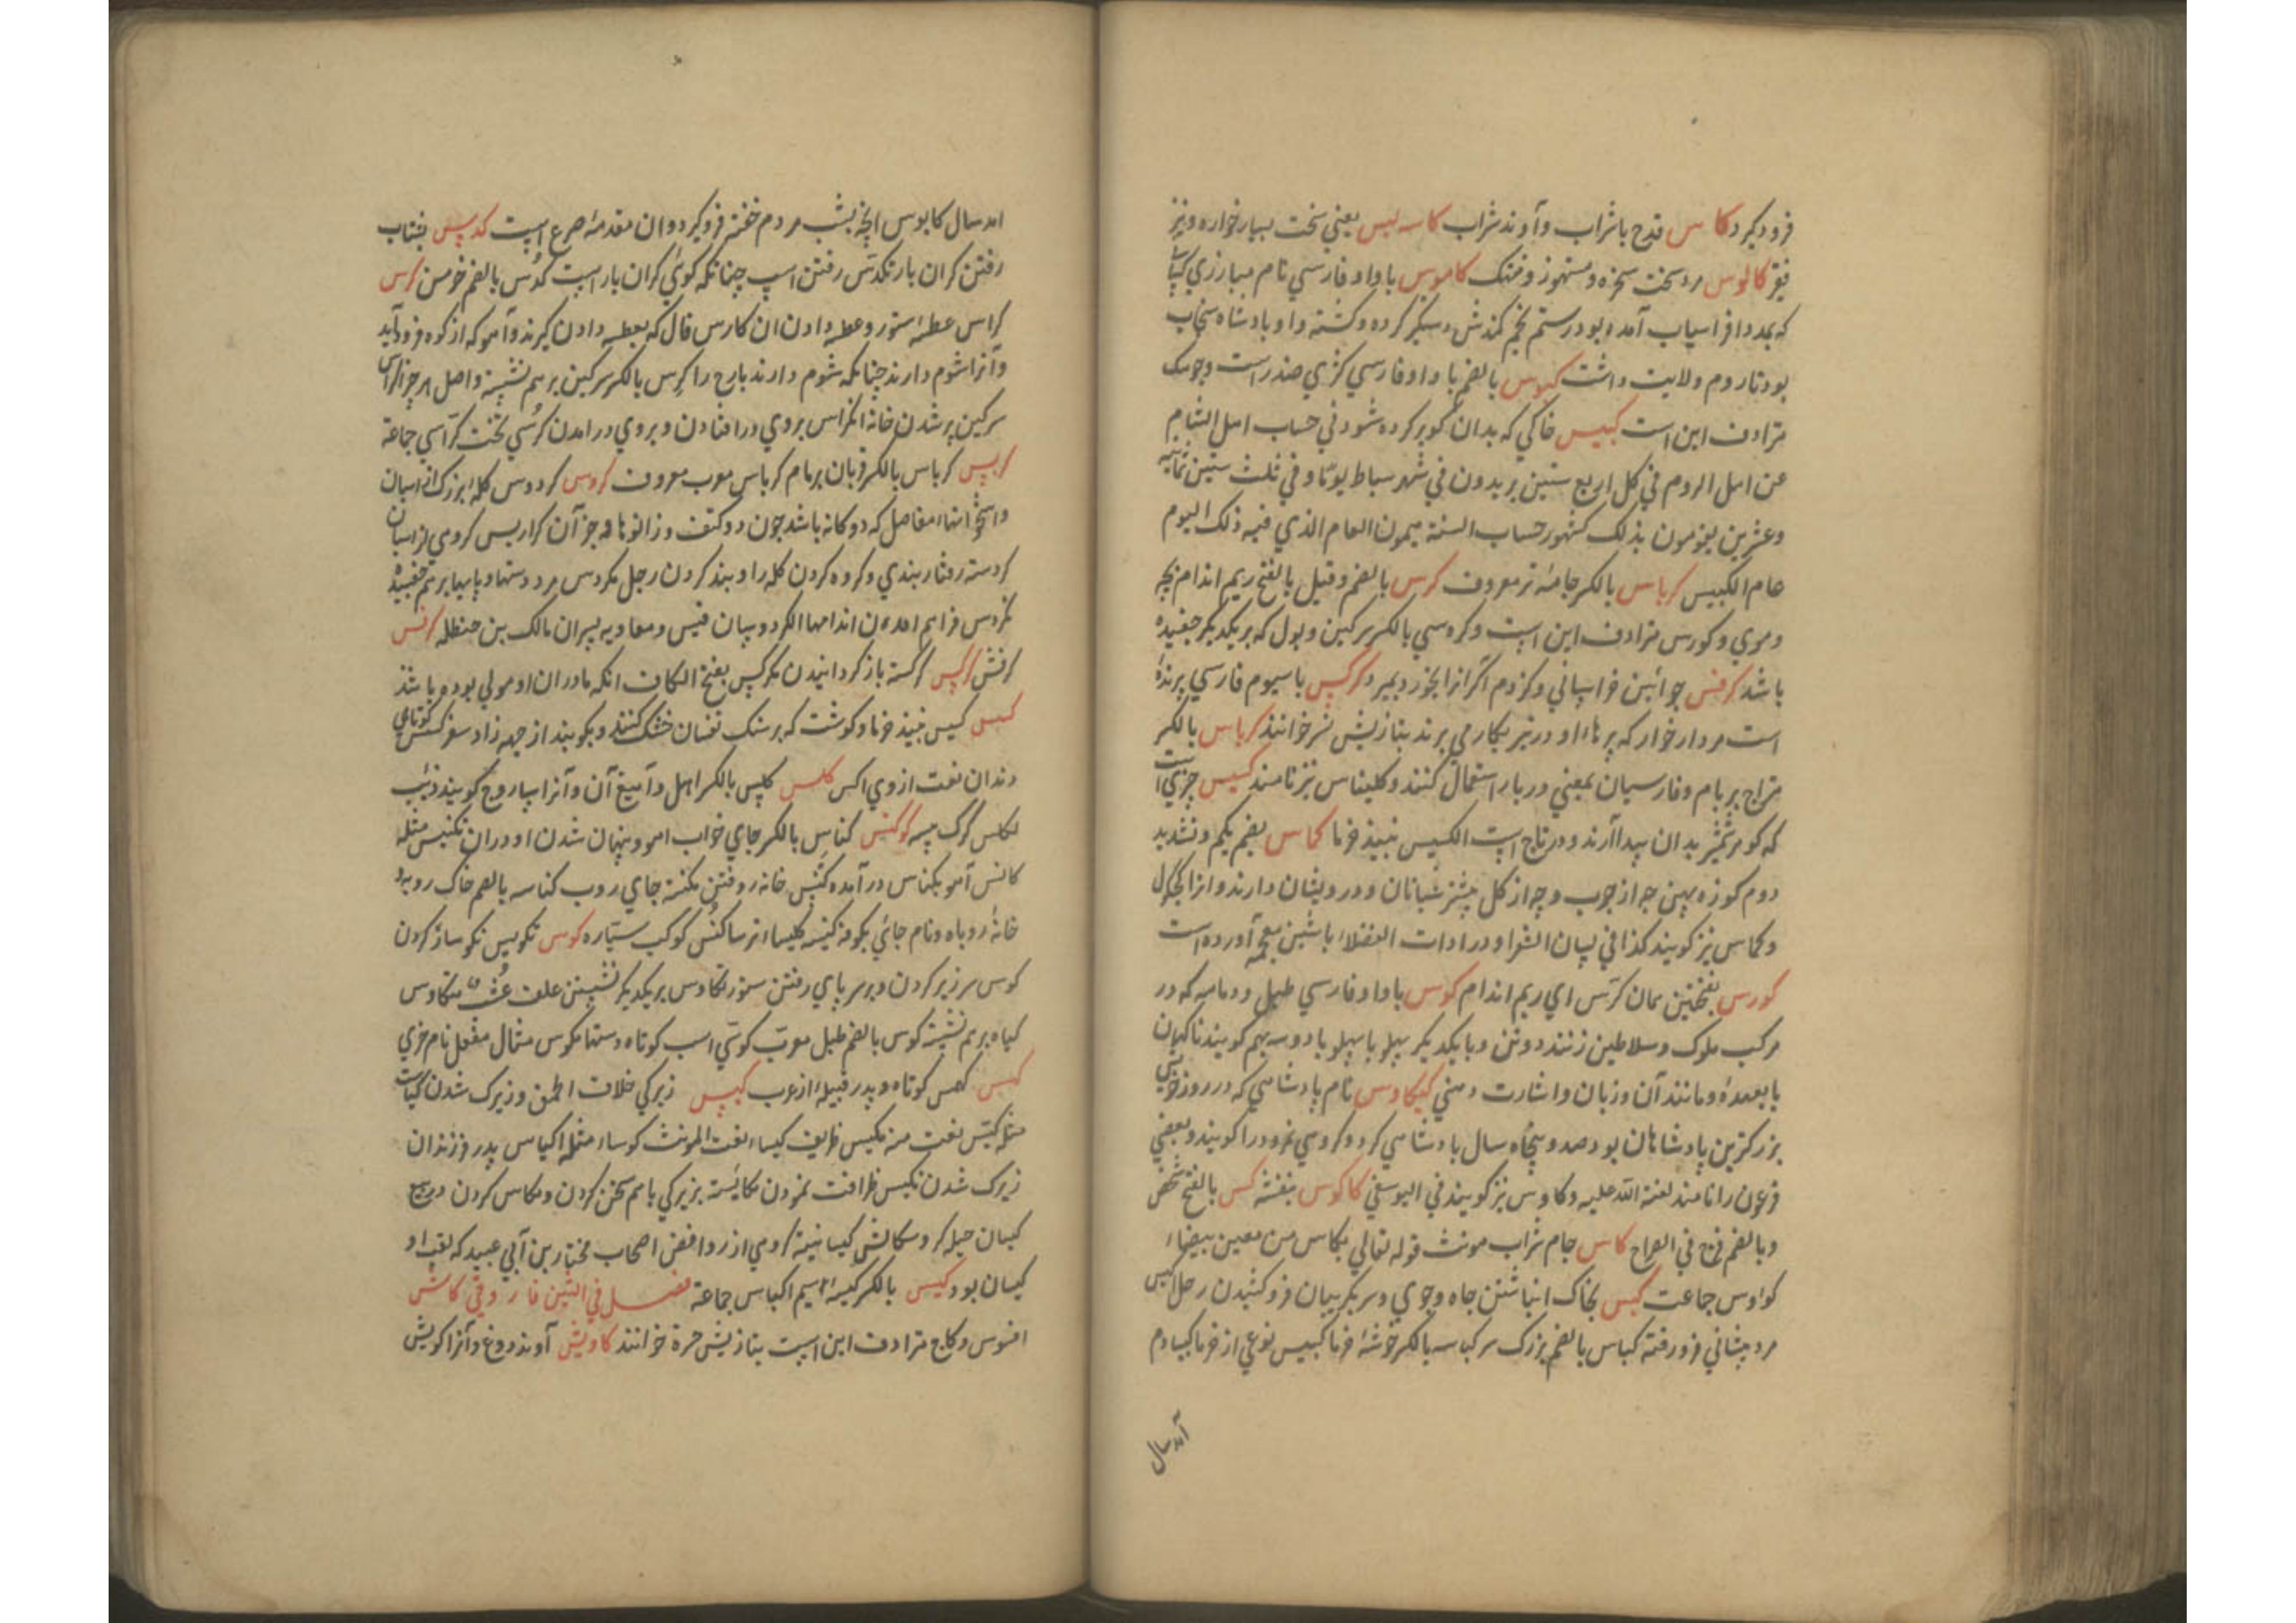 فرود کیرد کاس قدح با شراب وآوند شراب کاسه لیس یعنی سخت بسیار خواره ونیز
فقیر کالوس مرد سخت سخره ومستهزی وخنک کاموس با واو فارسی نام مبارزی
که بمدد افراسیاب آمده بود رستم بخم کمندش دستکیر کرده وکشته واو پادشاه سنجاب
بود تا روم ولایت داشت کیوس بالضم با واو فارسی کژی ضد راست وچوسک
مترادف این است کبیس خاکی که بدان کو پر کرده شود فی حساب اهل الشام
عن اهل الروم فی کل اربع سنین یزیدون فی شهر سباط یوما وفی ثلث سنین ثمانیة
وعشرین یقومون بذلک کسور حساب السنة یسمون العام الذی فیه ذلک الیوم
عام الکبیس کرباس بالکسر جامهٔ تر معروف کرس بالضم وقیل بالفتح ریم اندام بچه
وموی وکورس مترادف این است وکروسی بالکسر سرکین وبول که بر یکدیکر چفسیده
باشد کرفس جوائین خراسانی وکژدم اکر انرا بخورد بمیرد کرکس با سیوم فارسی پرندهٔ
است مردار خوار که پرهاء او در تیر بکار می برند بتازیش نسر خوانند کرباس بالکسر
متراج بر بام وفارسیان بمعنی دربار استعمال کنند وکلیناس نیز نامند کسیس چیزی است
که کوهر شمشیر بدان پیدا آرند ودر تاج است الکسیس نبیذ خرما کماس بضم یکم وتشدید
دوم کوزه پهن چه از چوب وچه از کل بیشتر شبانان ودرویشان دارند وانرا کچکول
وکماس نیز کویند کذا فی لسان الشعرا ودر ادات الفضلاء با شین معجمه آورده است
کورس بفتحتین همان کرس ای ریم اندام کوس با واو فارسی طبل ودمامه که در
مرکب ملوک وسلاطین زنند دوتن وبا یکدیکر پهلو با پهلو یا دوسه بهم کویند ناکهان
با بعمده ومانند آن وزبان واشارت ومنی کیکاوس نام پادشاهی که در روز خویش
بزرکترین پادشاهان بود صد وپنجاه سال پادشاهی کرد وکروهی نمرود را کویند وبعضی
فرعون را نامند لعنة الله علیه وکاوس نیز کویند فی الیوسفی کاکوس بنفشه کس بالفتح شخص
وبالضم فرج فی الصراح کاس جام شراب مونث قوله تعالی بکاس من معین بیضاء
کواوس جماعت کبس بخاک انباشتن چاه وجوی وسر بکریبان فروکشیدن رجل اکبس
مرد پیشانی فرو رفته کباس بالضم بزرک سر کباسه بالکسر خوشهٔ خرما کبیس نوعی از خرما کبیا دم
آمد سال
امد سال کابوس انچه بشب مردم خفته فرو کیرد وان مقدمهٔ صرع است کدس بشتاب
رفتن کران بار تکدس رفتن اسپ چنانکه کوئی کران بار است کدس بالضم خرمن کرس
کراس عطسهٔ ستور وعطسه دادن ان کارس فال که بعطسه دادن کیرند وآهو که از کوه فرود آید
وآنرا شوم دارند چنانکه شوم دارند بارح را کرس بالکسر سرکین بر هم نشسته واصل هر چیز اکراس
سرکین پر شدن خانه انکراس بروی درافتادن وبروی درامدن کرسی تخت کراسی جماعة
کربس کرباس بالکسر قربان بر بام کرباس معرب معروف کروس کردوس کلهٔ بزرک از اسبان
واستخوانهاء مفاصل که دوکانه باشد چون دو کتف وزانوها وجز آن کرادیس کروهی از اسبان
کردسة رفتار بندی وکروه کردن کله را وبند کردن رجل مکردس مرد دستها وپایها برهم چفسیده
تکردس فراهم امدن اندامها الکردوسان قیس ومعاویه پسران مالک بن حنظله کرفس
کرفس کرکس کرکسة باز کردانیدن مکرکس بفتح الکاف انکه مادران او مولی بوده باشد
کسس کسیس نبیذ خرما وکوشت که بر سنک تفسان خشک کنند وبکوبند از جهة زاد سفر کسس کوتاهی
دندان نعت ازوی اکس کلس کلس بالکسر اهل وآمیغ آن وآنرا ساروج کویند ذئب
لکلس کرک پیسه کونس کناس بالکسر جای خواب اهو وپنهان شدن او دران تکنس مثله
کانس آهو بکناس درآمده کنس خانه روفتن مکنسة جای روب کناسه بالضم خاک روبهٔ
خانهٔ روباه ونام جائی بکوفه کنیسه کلیساء ترسا کنس کوکب سیاره کوس تکویس نکوسار کردن
کوس سرزیر کردن وبرسر پای رفتن ستور تکاوس بر یکدیکر نشستن علف عشب متکاوس
کیاه برهم نشسته کوس بالضم طبل معرب کوسی اسب کوتاه دستها مکوس مثال مفعل نام خری
کهس کهمس کوتاه وپدر قبیلهٔ از عرب کیس زیرکی خلاف الحمق وزیرک شدن کیاست
مثله کیس نعت منه مکیس ظریف کیساء نعت المونث کوساء مثله اکیاس پدر فرزندان
زیرک شدن تکیس ظرافت نمودن مکایسة بزیرکی باهم سخن کردن ومکاس کردن در بیع
کیسان حیله کر وسکالش کیسانیة کروهی از روافض اصحاب مختار بن ابی عبید که لقب او
کیسان بود کیس بالکسر کیسهٔ سیم اکیاس جماعة فصل فی الشین فارسی کاش
افسوس وکاج مترادف این است بتازیش حرة خوانند کاویش آوند دوغ وآنرا کویش